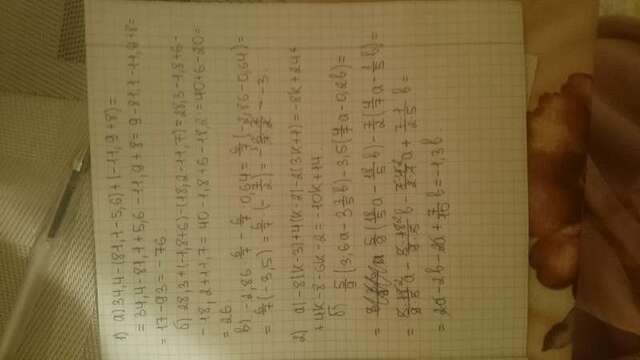 1) а) 34,4-(81,1-5,6)+(-11,9+8)=
= 34,4-81,1+5,6-11,9+8= 9-81,1-11,9+8=
= 17-93= -76
б) 28,3+(-1,8+6)-(18,2-11,7)=28,3-1,8+6-
-18,2+11,7= 40-1,8+6-18,2=40+6-20=
= 26
в) -2,86·6/7 - 6/7·0,64= 6/7(-2,86-0,64)=
= 6/7(-3,5)= 6/7·(-7/2)= = -3
2) а) -8(k-3)+4(k-2)-2(3k+1)=-8k+24+
+4k-8-6k-2=-10k+14
б) 5/9(3,6a-3 3/5b)-3,5(4/7a-0,2b)=
= 5/9(18/5a-18/5b)-7/2(4/7a-1/5b)=
= 5·18/9·5a-5·18/9·5b-7·4/2·7a+7·1/2·5b=
= 2a-2b-2a+7/10b=-1,3b